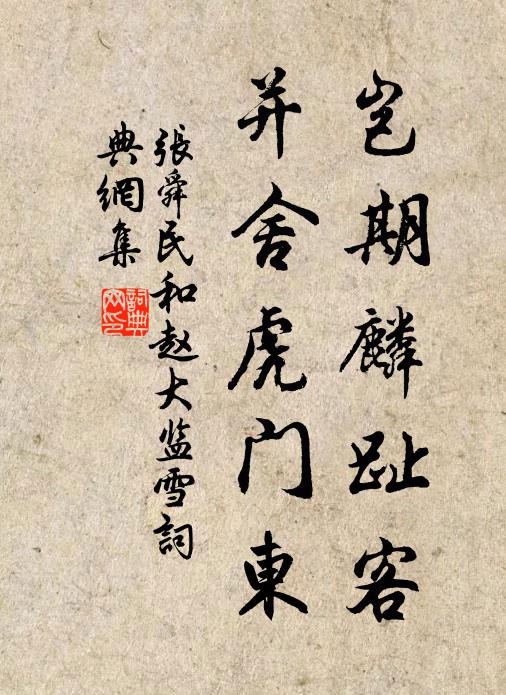 岂期麟趾客
并舍虎门東
張舜民和赵大监雪詞
典網集
詞典网印